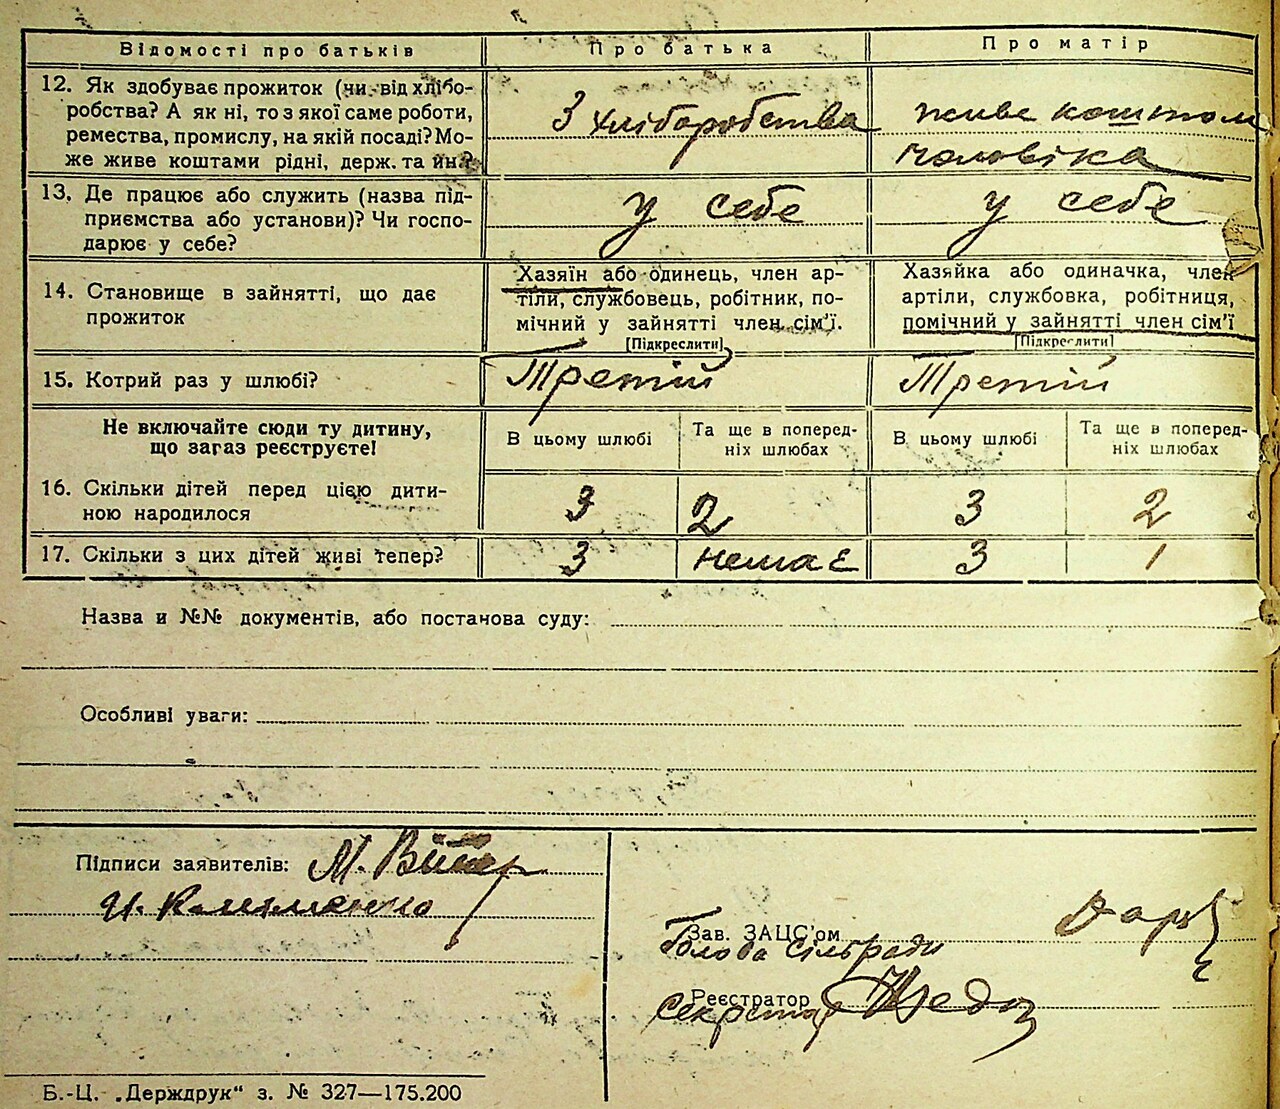 Відомості про батьків
Про батька
Про матір
12. Як здобуває прожиток (чи від хлібо-
робства? А як ні, то з якої саме роботи,
ремества, промислу, на якій посаді? Мо-
же живе коштами рідні, держ. та ин.?
З хліборобства
живе коштом
чоловіка
13. Де працює або служить (назва під-
приємства або установи)? Чи госпо-
дарює у себе?
у себе
у себе
14. Становище в зайнятті, що дає
прожиток
Хазяїн або одинець, член ар-
тіли, службовець, робітник, по-
мічний у зайнятті член сім'ї.
[Підкреслити]
Хазяйка або одиначка, член
артіли, службовка, робітниця,
помічний у зайнятті член сім'ї
[Підкреслити]
15. Котрий раз у шлюбі?
Третій
Третій
Не включайте сюди ту дитину,
що загаз реєструєте!
В цьому шлюбі
Та ще в поперед-
ніх шлюбах
В цьому шлюбі
Та ще в поперед-
ніх шлюбах
16. Скільки дітей перед цією дити-
ною народилося
3
2
3
2
17. Скільки з цих дітей живі тепер?
3
немає
3
1
Назва и №№ документів, або постанова суду:
Особливі уваги:
Підписи заявителів: М.
Зав. ЗАЦС'ом
Голова Сільради
Реєстратор
секретар
Б.-Ц. „Держдрук“ з. № 327—175.200